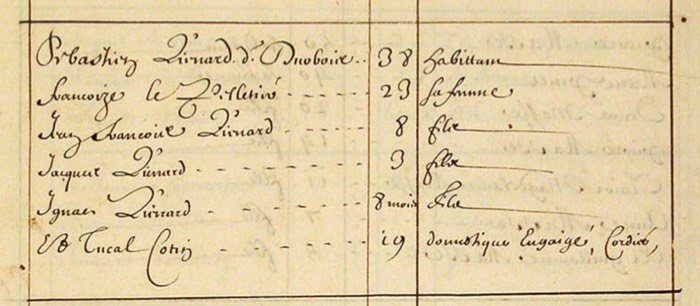 Sebastien Liénard d. Duoboire .. 38 habittant
francoize le Pelletier - - - - - - 23 sa femme
Jean francois Liénard - - - - - 8 filz
Jacques Liénard - - - - - - - 3 filz
Ignace Liénard - - - - - - 8 mois filz
Cotin - - - - - - - 19 domestique Engaigé, Cordier,